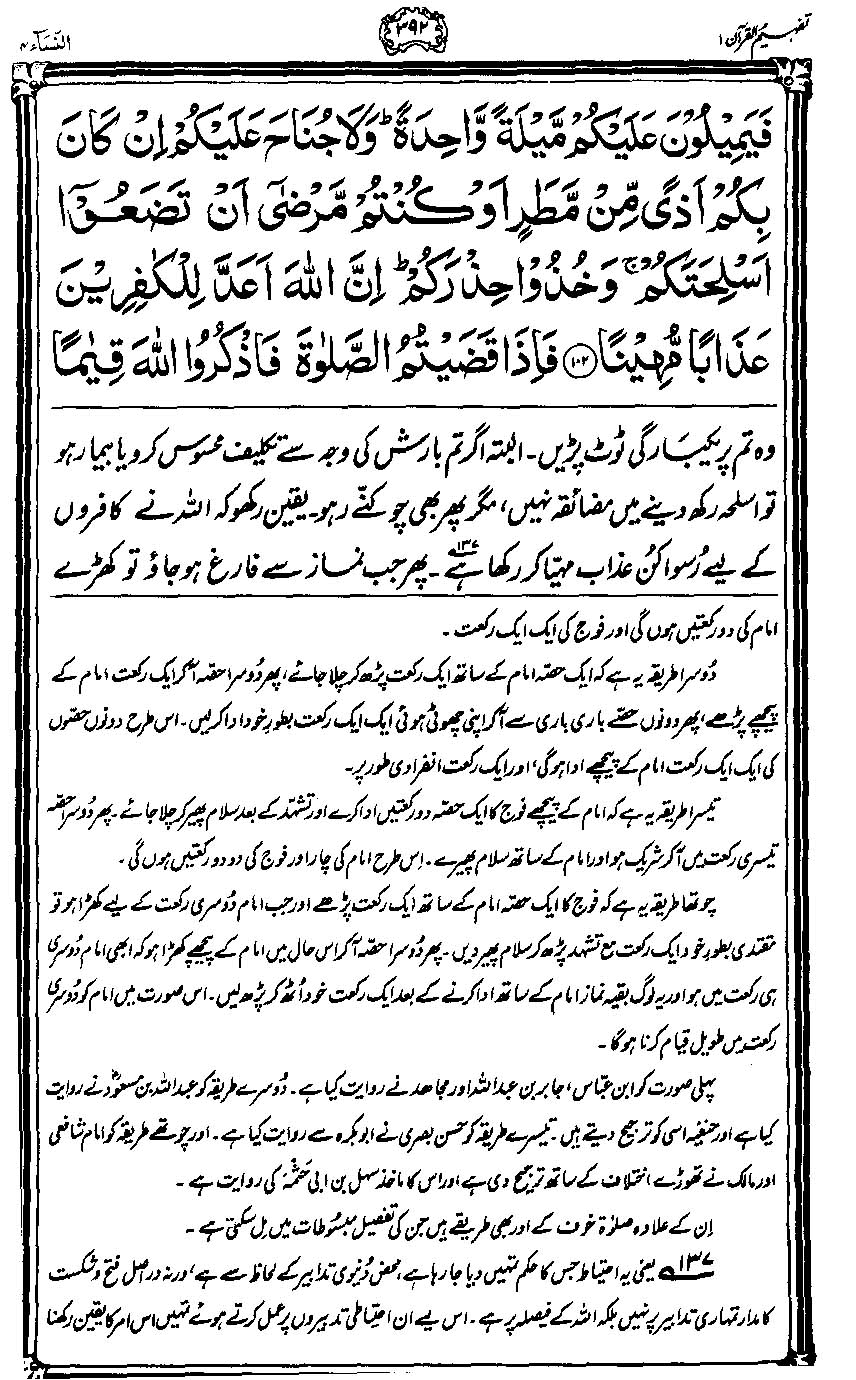 تفہیم القرآن ۱
۳۹۲
النساء ۴
فَيَمِيْلُوْنَ عَلَيْكُمْ مَّيْلَةً وَّاحِدَةً ؕ وَلَا جُنَاحَ عَلَيْكُمْ اِنْ كَانَ
بِكُمْ اَذًى مِّنْ مَّطَرٍ اَوْ كُنْتُمْ مَّرْضٰۤى اَنْ تَضَعُوْۤا
اَسْلِحَتَكُمْ ۚ وَخُذُوْا حِذْرَكُمْ ؕ اِنَّ اللّٰهَ اَعَدَّ لِلْكٰفِرِيْنَ
عَذَابًا مُّهِيْنًا ۝۱۰۲ فَاِذَا قَضَيْتُمُ الصَّلٰوةَ فَاذْكُرُوا اللّٰهَ قِيٰمًا
وہ تم پر یکبارگی ٹوٹ پڑیں۔ البتہ اگر تم بارش کی وجہ سے تکلیف محسوس کرو یا بیمار ہو
تو اسلحہ رکھ دینے میں مضائقہ نہیں، مگر پھر بھی چوکنّے رہو۔ یقین رکھو کہ اللہ نے کافروں
کے لیے رُسوا کُن عذاب مہیّا کر رکھا ہے۱۳۷۔ پھر جب نماز سے فارغ ہو جاؤ تو کھڑے
امام کی دو رکعتیں ہوں گی اور فوج کی ایک ایک رکعت۔
دُوسرا طریقہ یہ ہے کہ ایک حصّہ امام کے ساتھ ایک رکعت پڑھ کر چلا جائے، پھر دُوسرا حصّہ آکر ایک رکعت امام کے
پیچھے پڑھے، پھر دونوں حصّے باری باری سے آکر اپنی چھوٹی ہوئی ایک ایک رکعت بطورِ خود ادا کرلیں۔ اس طرح دونوں حصّوں
کی ایک ایک رکعت امام کے پیچھے ادا ہوگی، اور ایک رکعت انفرادی طور پر۔
تیسرا طریقہ یہ ہے کہ امام کے پیچھے فوج کا ایک حصّہ دو رکعتیں ادا کرے اور تشہّد کے بعد سلام پھیر کر چلا جائے۔ پھر دُوسرا حصّہ
تیسری رکعت میں آکر شریک ہو اور امام کے ساتھ سلام پھیرے۔ اِس طرح امام کی چار اور فوج کی دو دو رکعتیں ہوں گی۔
چوتھا طریقہ یہ ہے کہ فوج کا ایک حصّہ امام کے ساتھ ایک رکعت پڑھے اور جب امام دُوسری رکعت کے لیے کھڑا ہو تو
مقتدی بطورِ خود ایک رکعت مع تشہد پڑھ کر سلام پھیر دیں۔ پھر دُوسرا حصّہ آکر اس حال میں امام کے پیچھے کھڑا ہو کہ ابھی امام دُوسری
ہی رکعت میں ہو اور یہ لوگ بقیہ نماز امام کے ساتھ ادا کرنے کے بعد ایک رکعت خود اُٹھ کر پڑھ لیں۔ اس صورت میں امام کو دُوسری
رکعت میں طویل قیام کرنا ہوگا۔
پہلی صورت کو ابن عباس، جابر بن عبداللہ اور مجاہد نے روایت کیا ہے۔ دُوسرے طریقہ کو عبداللہ بن مسعودؓ نے روایت
کیا ہے اور حنفیہ اسی کو ترجیح دیتے ہیں۔ تیسرے طریقہ کو حسن بصری نے ابوبکرہ سے روایت کیا ہے۔ اور چوتھے طریقہ کو امام شافعی
اور مالک نے تھوڑے اختلاف کے ساتھ ترجیح دی ہے اور اس کا ماخذ سہل بن ابی حَثْمَہؓ کی روایت ہے۔
اِن کے علاوہ صلوٰۃ خوف کے اور بھی طریقے ہیں جن کی تفصیل مبسوطات میں مل سکتی ہے۔
۱۳۷ یعنی یہ احتیاط جس کا حکم تمہیں دیا جا رہا ہے، محض دُنیوی تدابیر کے لحاظ سے ہے، ورنہ دراصل فتح و شکست
کا مدار تمہاری تدابیر پر نہیں بلکہ اللہ کے فیصلہ پر ہے۔ اس لیے ان احتیاطی تدبیروں پر عمل کرتے ہوئے تمہیں اس امر کا یقین رکھنا